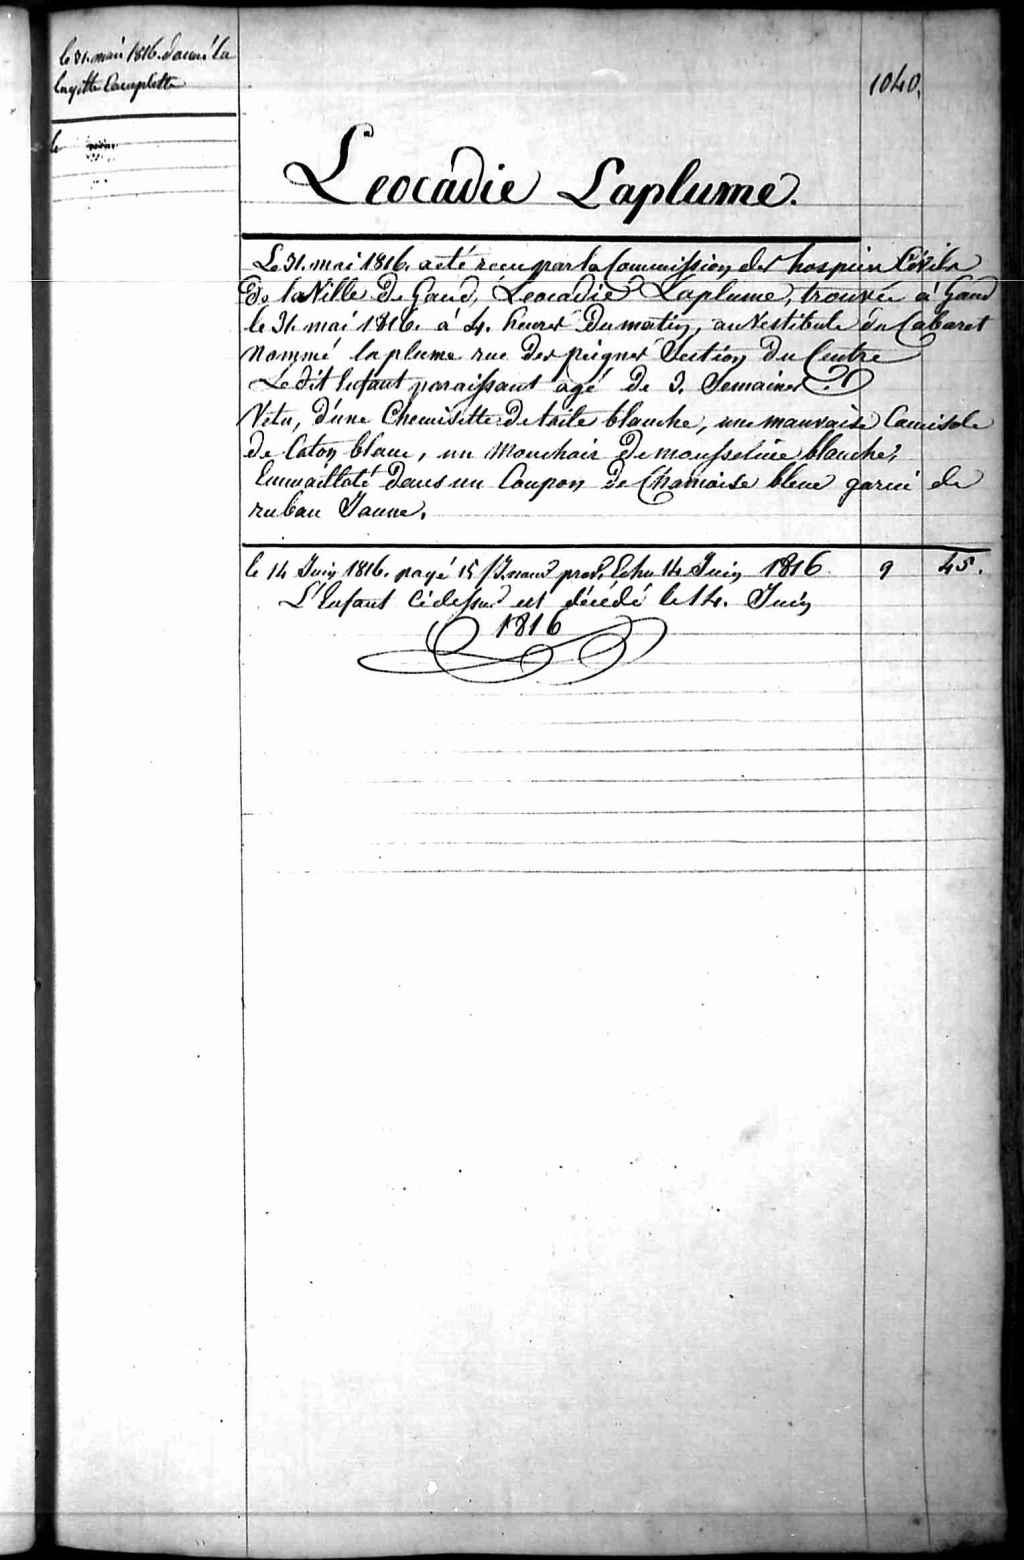 le 31. mai 1816. donné la
layette Complette
1040.
le
Leocadie Laplume.
Le 31. mai 1816. a eté recu par la Commission des hospices Civils
De la Ville De Gand, Leocadie Laplume, trouvée à Gand
le 31. mai 1816. à 4. heures Du matin, au Vestibule du Cabaret
Nommé la plume rue Des peignes Section Du Centre
Le dit Enfant paraissant agé de 3. Semaines
Vetu, d'une Chemisette de toile blanche, une mauvaise Camisole
de Coton blanc, un Mouchoir De mousseline blanche,
Emmailloté Dans un Coupon De Chamoise bleue garni de
ruban Jaune.
le 14 Juin 1816. payé 15 Echu 14 Juin 1816 9 45.
L'Enfant Cidessus est décédé le 14. Juin
1816